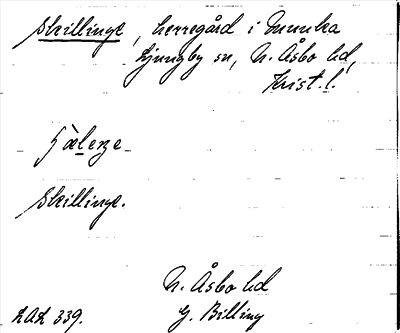 Skillinge, herregård i Munka
Ljungby sn, N. Åsbo hd,
Krist. l.
Skillinge.
N. Åsbo hd
LAL 339. G. Billing